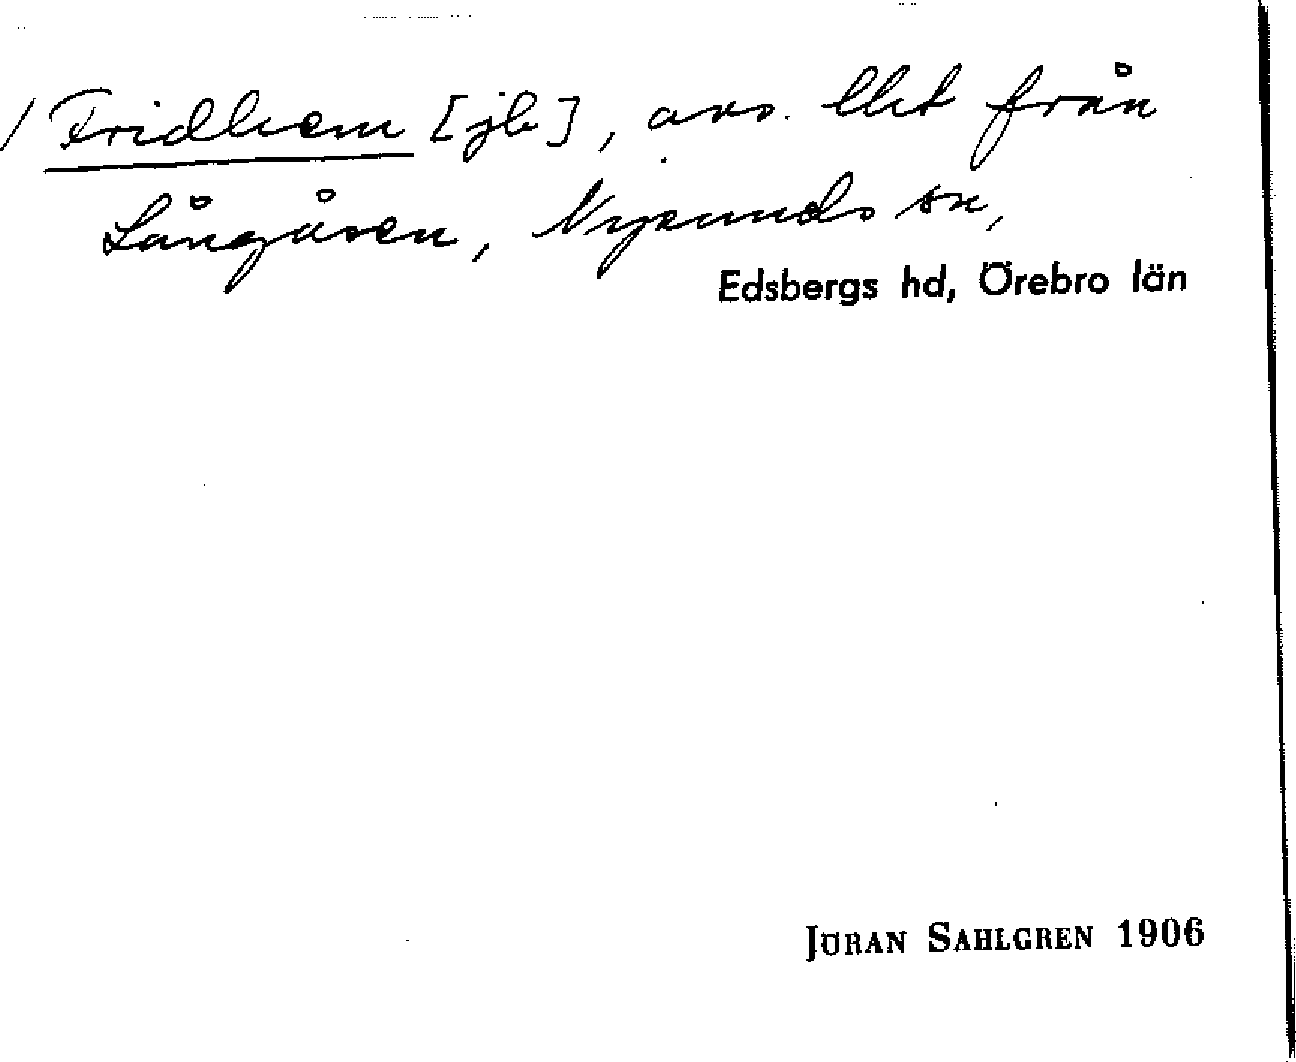 / Fridhem [jb], avs. lht från
Långåsen, Nysunds sn,
Edsbergs hd, Örebro län
JÖRAN SAHLGREN 1906